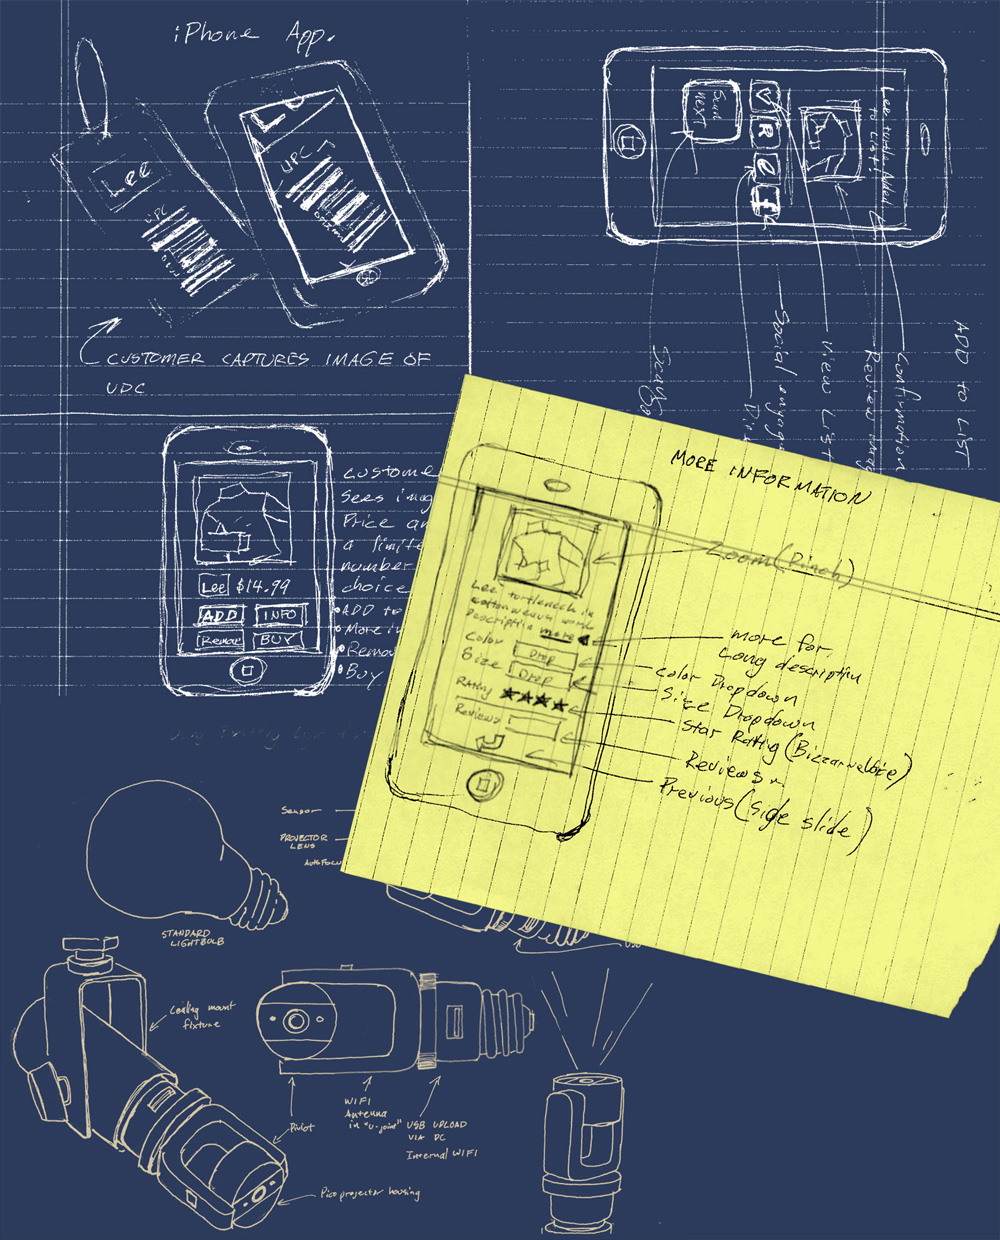 iPhone App.
Lee
UPC
UPC
CUSTOMER CAPTURES IMAGE OF
UDC
Lee turtle Added
to List!
Scan
next
ADD TO LIST
Confirmation
Review
View LIST
Social engag
Lee $14.99
ADD INFO
Remove BUY
Custome
Sees imag
Price an
a limite
number
choice
ADD to
More in
Remov
Buy
MORE INFORMATION
Zoom (Pinch)
Lee turtleneck in
cotton weave
Description more
Color Drop
Size Drop
Rating
Reviews
more for
Long description
Color Dropdown
Size Dropdown
Star Rating (Bizzarvoice)
Reviews
Previous (side slide)
Sensor
PROJECTOR
LENS
AUTOFOCU
STANDARD
LIGHTBULB
Ceiling mount
fixture
Pivot
WIFI
Antenna
in "U-joint"
USB UPLOAD
VIA PC
Internal WIFI
Pico projector housing